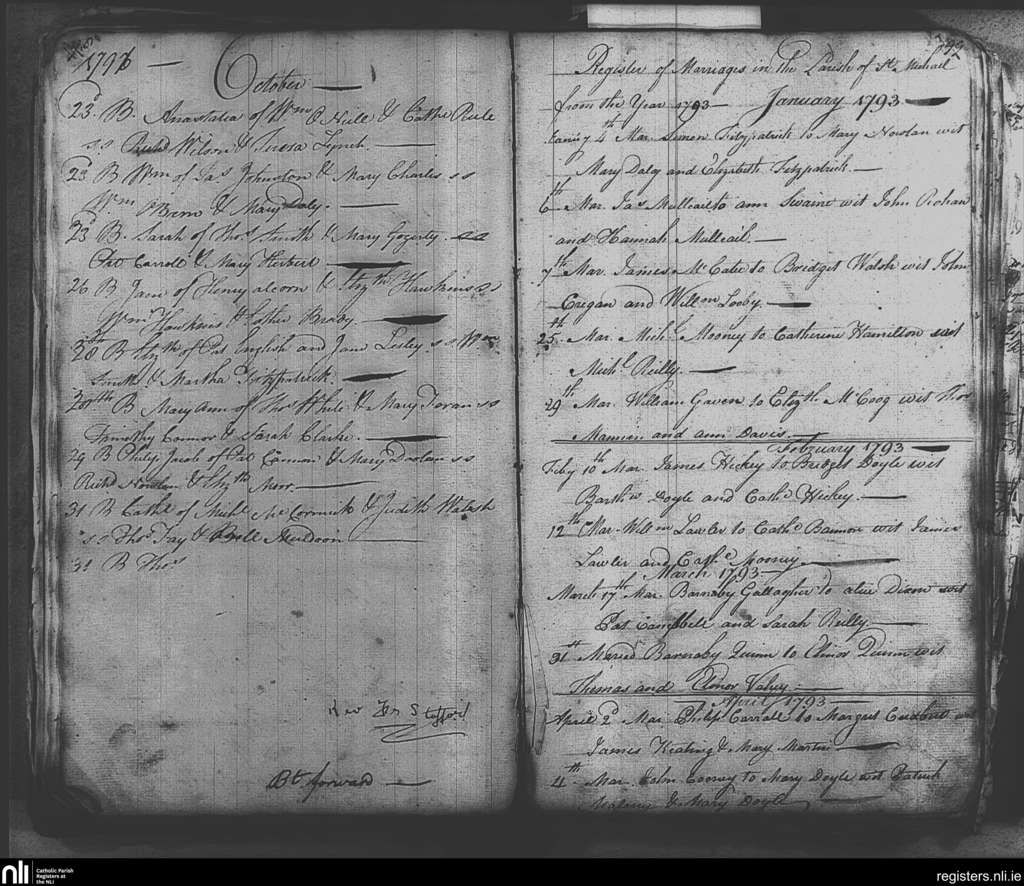 1796 —
October —
23d B. Anastatia of Wm O Neile & Cathe Rule
ss Richd Wilson & Teresa Lynch. —
23 B Wm of Jas Johnston & Mary Charles ss
Wm OBrien & Mary Daly. —
23 B. Sarah of Thos Smith & Mary Gogerty. ss
Pat Carroll & Mary Herbert —
26 B Jane of Henry alcorn & Elizth Hawkins ss
Wm Hawkins & Esther Brady. —
28 B Elizth of Pat English and Jane Lesley. ss Wm
Smith & Martha Fitzpatrick. —
28th B Mary Ann of Thos White & Mary Foran ss
Timothy Connor & Sarah Clarke. —
29 B Philip Jacob of Pat & Mary Doolan ss
Richd Nowlan & Elizth —
31 B Cathe of Michl McCormick & Judith Walesh
ss Thos Fay & Bell Muldoon —
31 B Thos
Rev Stafford
Bt. forward —
1792
Register of Marriages in the Parish of St. Michael
from the Year 1793 — January 1793 —
January 4th Mar. Simon Fitzpatrick to Mary Nowlan wit
Mary Daly and Elizabeth Fitzpatrick. —
6th Mar. Jas Mulleail to ann Swaine wit John
and Hannah Mulleail. —
7th Mar. James McCabe to Bridget Walsh wit John
Cregan and Willm Looby. —
25th Mar. Michl Mooney to Catherine Hamilton wit
Michl Reilly. —
29th Mar. William Gaven to Elizth McCoog wit Thos
Mannin and ann Davis. —
February 1793 —
Feby 10th Mar. James Hickey to Bridget Doyle wit
Barthw Doyle and Cathe Hickey. —
12th Mar. Willm Lawler to Cathe Bannon wit James
Lawler and Cathe Mooney —
March 1793 —
March 17th Mar. Barnaby Gallagher to alice Dixon wit
Pat Campbell and Sarah Reilly. —
31st Maried Barnaby Quinn to Elinor Quinn wit
Thomas and Elinor —
April 1793 —
April 2d Mar. Philip Carroll to Margret wit
James Keating & Mary Martin —
4th Mar. John Cooney to Mary Doyle wit Patrick
& Mary Doyle —
nli
Catholic Parish
Registers at
the NLI
registers.nli.ie